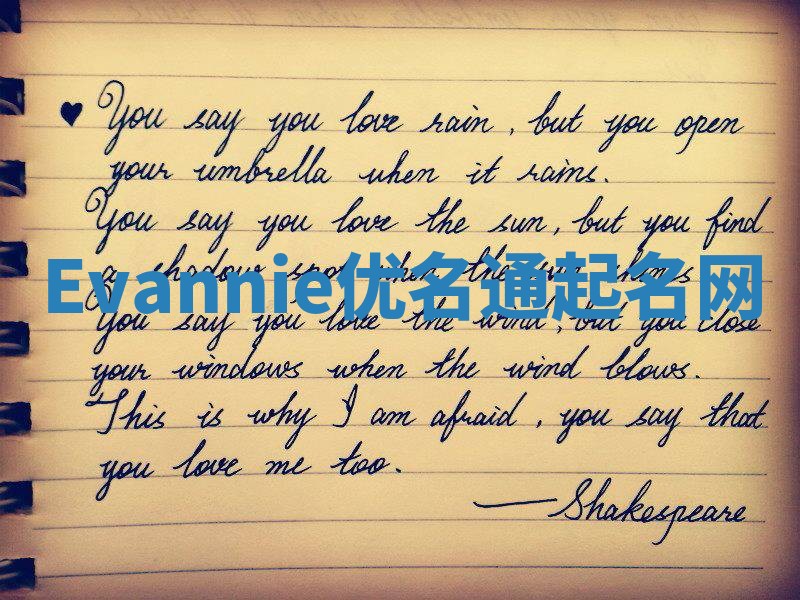 ♥ You say you love rain, but you open
your umbrella when it rains.
You say you love the sun, but you find
a shadow spot when the sun shines
Evannie优名通起名网
You say you love the wind, but you close
your windows when the wind blows.
This is why I am afraid, you say that
you love me too.
—Shakespeare